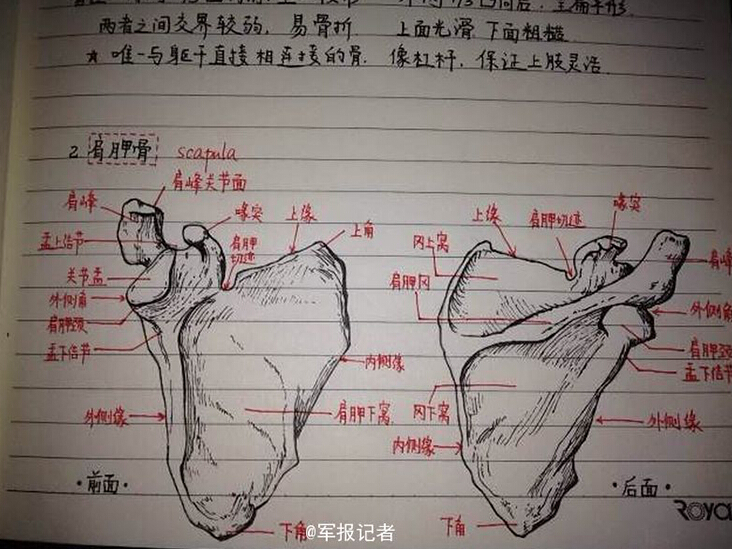 两者之间交界较弱，易骨折　上面光滑，下面粗糙
★ 唯一与躯干直接相连接的骨．像杠杆，保证上肢灵活
2 肩胛骨 scapula
肩峰关节面
肩峰
喙突
上缘
上角
盂上结节
肩胛切迹
关节盂
外侧角
肩胛颈
盂下结节
内侧缘
外侧缘
肩胛下窝
·前面·
下角
上缘
肩胛切迹
喙突
冈上窝
肩峰
肩胛冈
外侧角
肩胛颈
盂下结节
冈下窝
外侧缘
内侧缘
·后面·
下角
@军报记者